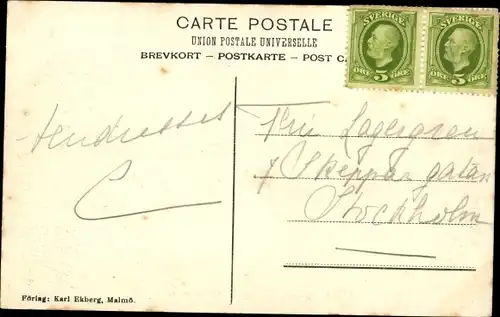 CARTE POSTALE
UNION POSTALE UNIVERSELLE
BREVKORT – POSTKARTE – POST CA
SVERIGE SVERIGE
ÖRE 5 ÖRE ÖRE 5 ÖRE
Lagergren
Skeppargatan
Stockholm
Förlag: Karl Ekberg, Malmö.